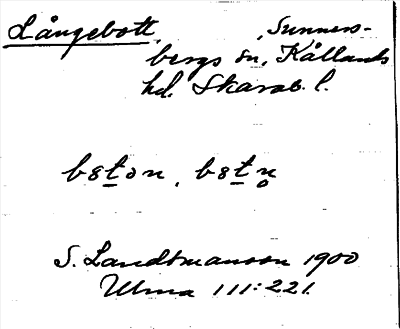 Långebott, Sunners-
bergs sn, Kållands
hd. Skarab. l.
bɛton, bɛtn̥
S. Landtmanson 1900
Ulma 111:221.